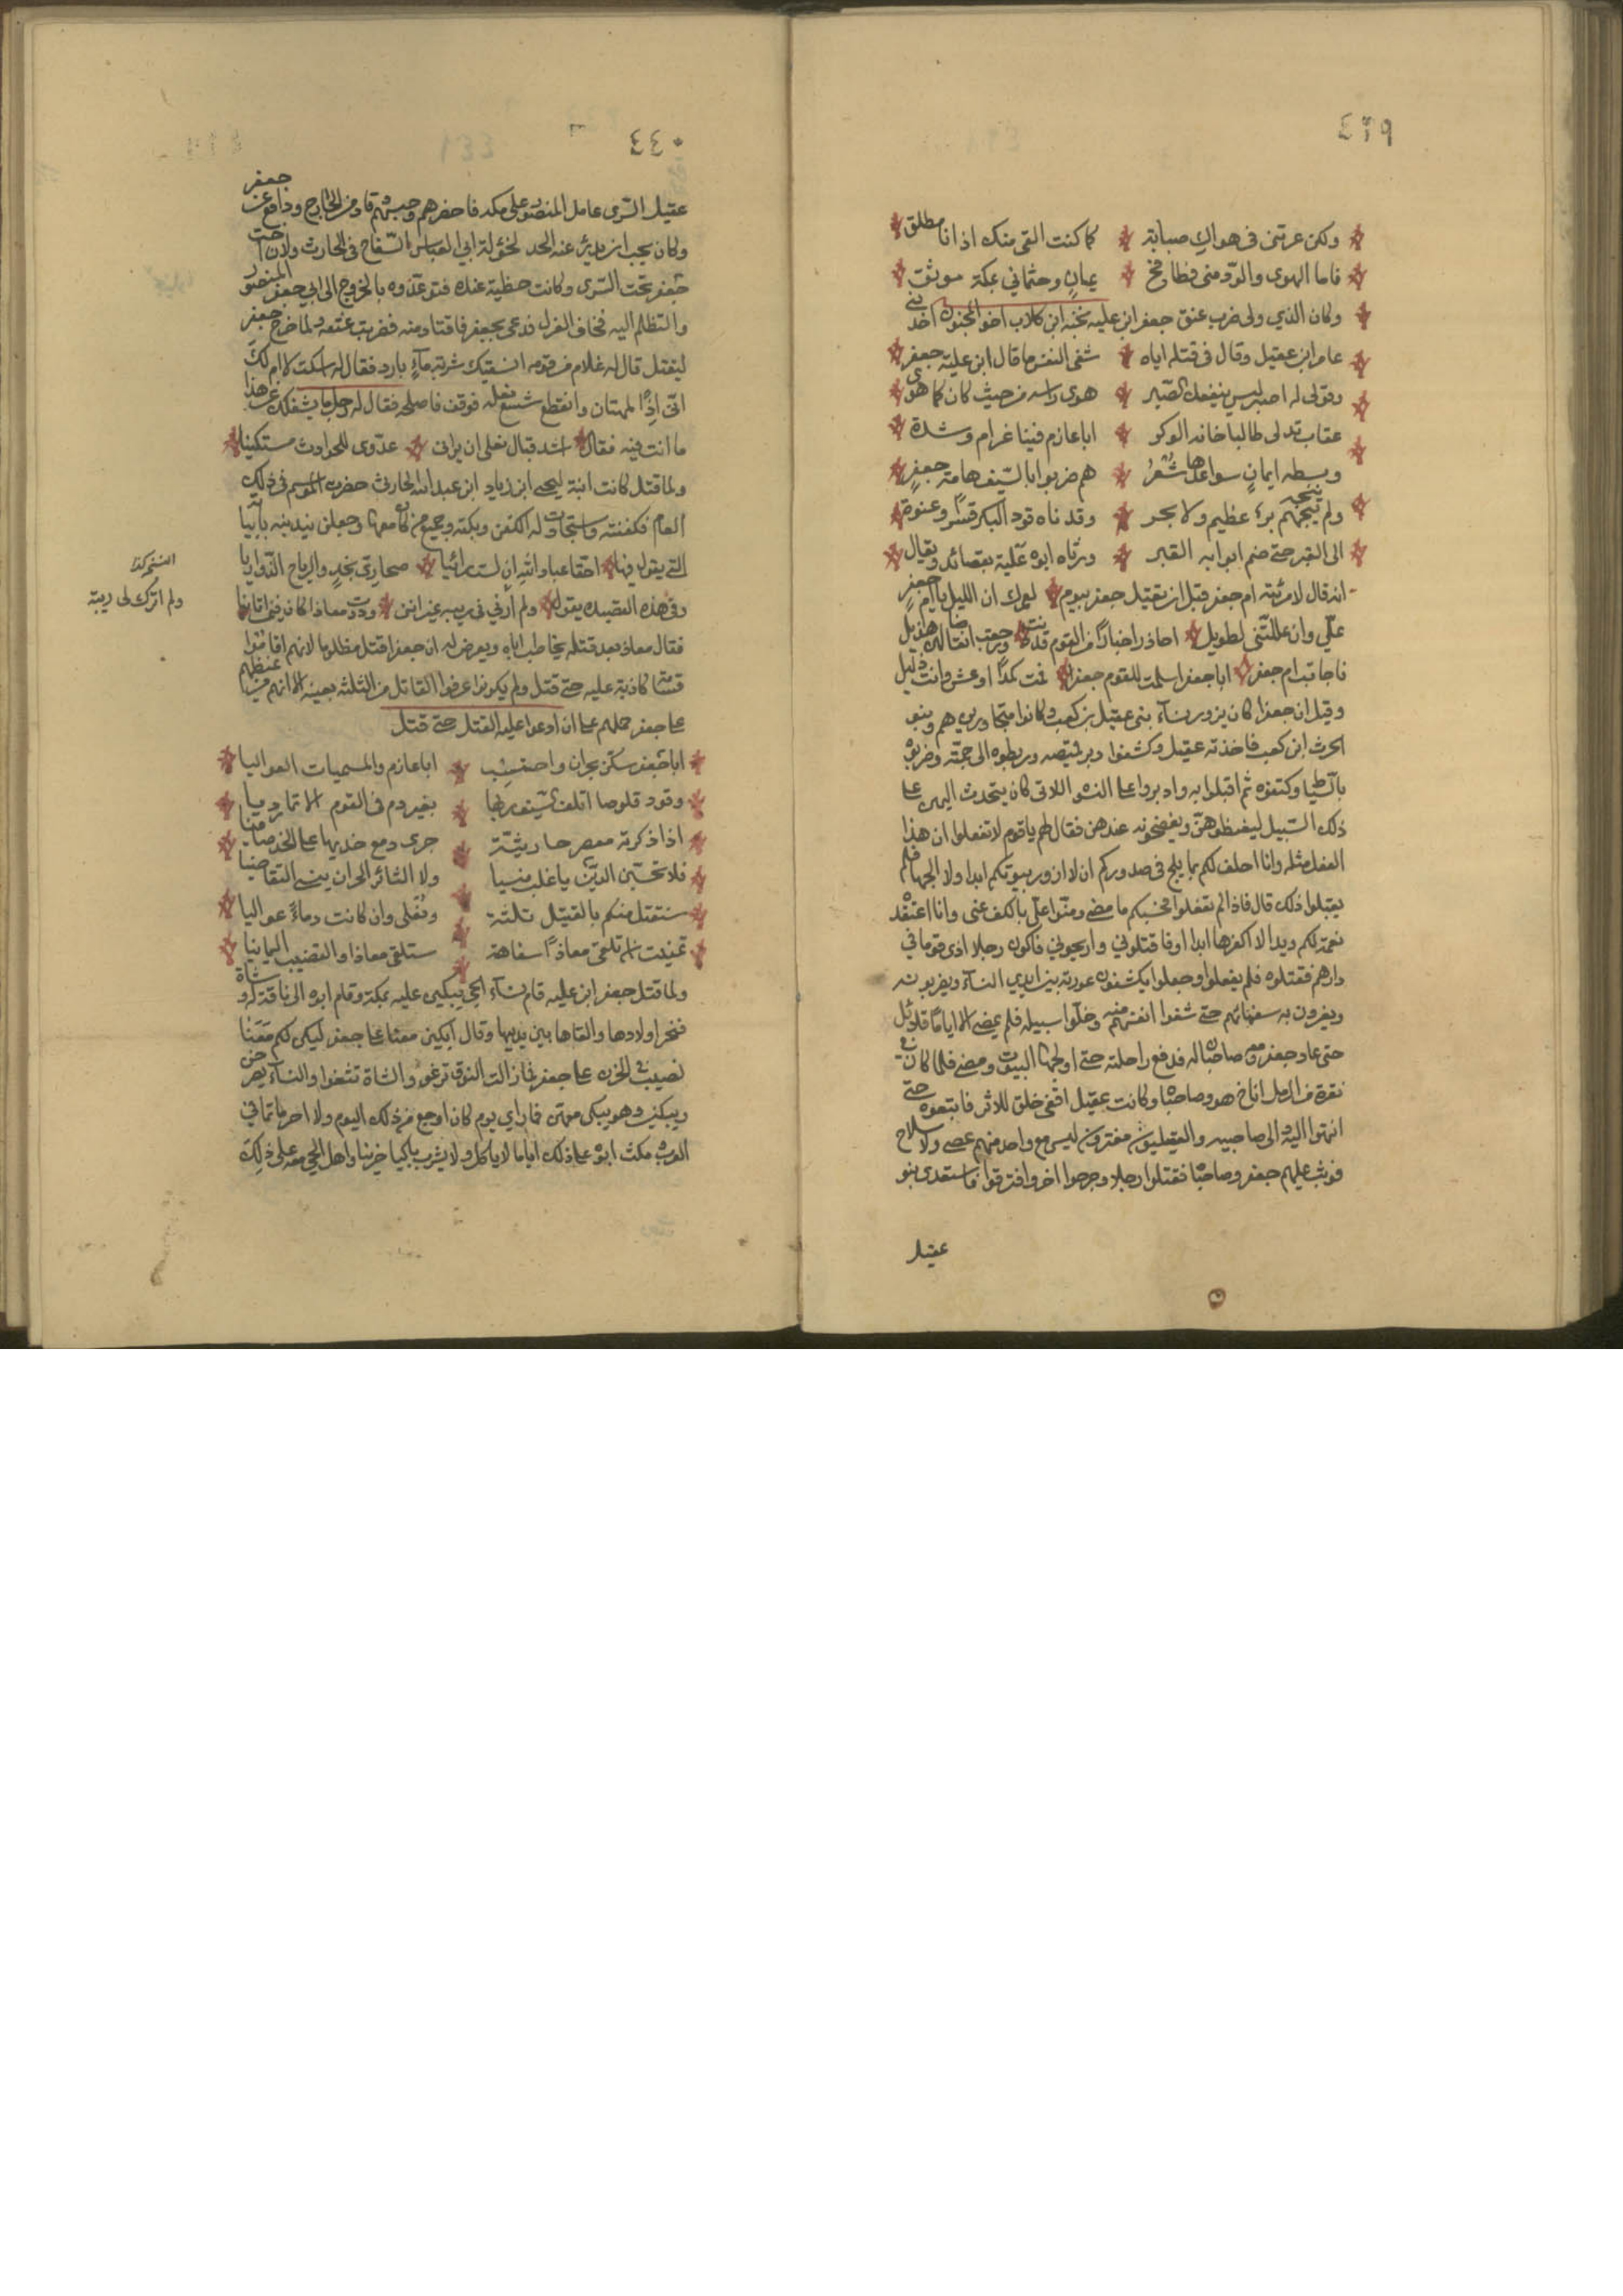 ٤٣٩
ولكن عرتني في هواك صبابة * كما كنت القى منك اذ انا مطلق
فاما الهوى والود مني فطامح * يمان وجثماني بمكة موثق
وكان الذي ولى ضرب عنق جعفر ابن علبه نخبه ابن كلاب اخو المجنون احد بني
عامر ابن عقيل وقال في قتله اياه * شفى النفس ما قال ابن علبة جعفر
وقولى له اصبر ليس ينفعك الصبر * هوى راسه من حيث كان كما هوى
عقاب تدلى طالبا خانه الوكر * ابا عازم فينا غرام وشدة
وبسطه ايمان سواعدها شعر * هم ضربوا بالسيف هامة جعفر
ولم ينجهم بر عظيم ولا بحر * وقدناه قود البكر قسرا وعنوة
الى القبر حتى ضم اثوابه القبر * ورثاه ابوه علبة بقصائد ويقال
انه قال لامرئته ام جعفر قبل ان يقتل جعفر بيوم * لعمرك ان الليل يا ام جعفر
علي وان عللتني لطويل * احاذر اخبارا من القوم قد دنت * ورجعت انقاضا لهن دليل
فاجابته ام جعفر * ابا جعفر اسلمت للقوم جعفرا * فمت كمدا او عش وانت ذليل
وقيل ان جعفرا كان يزور نسآء بني عقيل بن كعب وكانوا متجاورين هم وبنو
الحرث ابن كعب فاخذته عقيل وكشفوا دبر قميصه وربطوه الى جمته وضربوه
بالسياط وكتفوه ثم اقبلوا به وادبروا على النسوة اللاتي كان يتحدث اليهن على
ذلك السبيل ليغيظوهن ويفضحونه عندهن فقال لهم يا قوم لا تفعلوا ان هذا
الفعل مثله وانا احلف لكم بما يثلج في صدوركم ان لا ازور بيوتكم ابدا ولا الجها فلم
يقبلوا ذلك قال فاذا لم تفعلوا فحسبكم ما مضى ومنوا علي بالكف عنى وانا اعتقده
نعمة لكم ويدا لا اكفرها ابدا او فاقتلوني واريحوني فاكون رجلا اذى قوما في
دارهم فقتلوه فلم يفعلوا وجعلوا يكشفون عورته بين ايدي النسآء ويضربونه
ويغرون به سفهائهم حتى شفوا انفسهم منه وخلوا سبيله فلم يمضى الا اياما قلائل
حتى عاد جعفر ومعه صاحبان له فدفع راحلته حتى اولجها البيوت ومضى فلما كان في
نقرة من الرمل اناخ هو وصاحباه وكانت عقيل اقفى خلق للاثر فاتبعوه حتى
انتهوا اليه والى صاحبيه والعقيليون مفترقون ليس مع واحد منهم عصى ولا سلاح
فوثب عليهم جعفر وصاحباه فقتلوا رجلا وجرحوا اخر وافترقوا فاستعدى بنو
عقيل
٤٤٠
عقيل السرى عامل المنصور على مكه فاحضرهم وحبسهم فاقاد من الخارج ودافع عن جعفر
وكان يحب ان يدرئ عنه الحد لخئولة ابي العباس السفاح في الحارث ولان اخت
جعفر تحت السرى وكانت حظية عنده فتوعدوه بالخروج الى ابي جعفر المنصور
والتظلم اليه فخاف العزل فدعى بجعفر فاقتاد منه فضربت عنقه ولما خرج جعفر
ليقتل قال له غلام من قومه اسقيك شربة مآء بارد فقال له اسكت لا ام لك
اني اذا لمهتان وانقطع شسع نعله فوقف فاصلحه فقال له رجل ما يشغلك عن هذا
ما انت فيه فقال * اشد قبال نعلي ان يراني * عدوى للحوادث مستكينا
ولما قتل كانت ابنة ليحيى ابن زياد ابن عبد الله الحارثي حضرت الموسم في ذلك
العام فكفنته واستجادت له الكفن وبكته وجميع من كان معها وجعلن يندبنه بابياته
التي يقول فيها * احقا عباد الله ان لست رائيا * صحارى نجد والرياح الذواريا
وفي هذه القصيده يقول * ولم ادني في ريبه غير انني * وددت معاذا كان فيمن اتانيا
فقال معاذ بعد قتله يخاطب اباه ويعرض له ان جعفرا قتل مظلوما لانهم اقاموا
قسامة كاذبة عليه حتى قتل ولم يكونوا عرفوا القاتل من الثلثه بعينه الا انهم من غيظهم
على جعفر حملهم على ان ادعوا عليه القتل حتى قتل
ابا جعفر سكن بجران واحتسب * ابا عازم والمسميات العواليا
وقود قلوصا اتلف السيف ربها * بغير دم في القوم الا تماريا
اذا ذكرته معصر حارثيتة * جرى دمع خديها على الخد صافيا
فلا تحسبن الدين يا غلب منسيا * ولا الثائر الحران ينسى التقاضيا
سنقتل منكم بالقتيل ثلثة * ونغلى وان كانت دماءً عواليا
تمنيت ان تلقى معاذا سفاهة * ستلقى معاذا والقضيب اليمانيا
ولما قتل جعفر ابن علبه قام نسآء الحي يبكين عليه بمكة وقام ابوه الى ناقته وشاة
فنحر اولادها والقاها بين يديها وقال ابكين معنا على جعفر
نصيب في الحزن على جعفر فما زالت النوق ترغو والشاة تثغوا والنسآء يصرخن
ويبكين وهو يبكى معهن فما راي يوم كان اوجع من ذلك اليوم ولا احر ماتما في
العرب مكث ابوه على ذلك اياما لا ياكل ولا يشرب باكيا حزينا واهل الحي معه على ذلك
ولم اترك لى ريبة